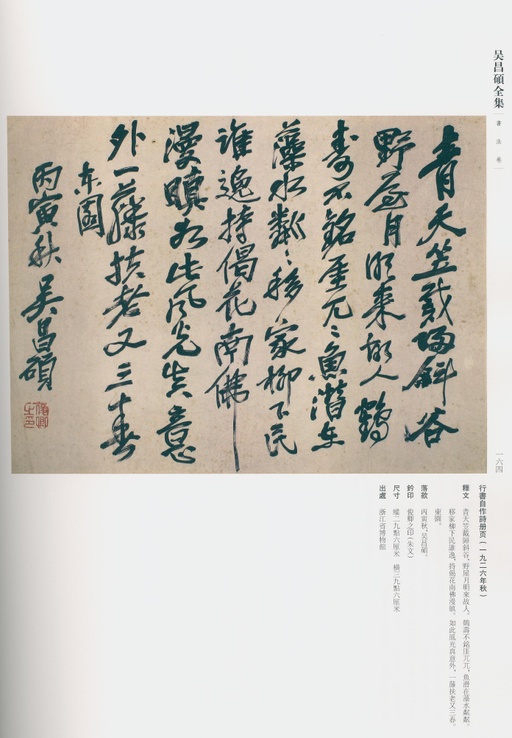 吴昌碩全集
書法卷
青天笠戴陽斜谷
野屋月明来故人鶴
壽不銘厓兀〻魚潛在
藻水粼〻移家柳下民
誰逸持偈花南佛
漫瞋如此風光真意
外一藤扶老又三春
东園
丙寅秋吴昌碩
一六四
行書自作詩册页(一九二六年秋)
釋文 青天笠戴陽斜谷，野屋月明來故人。鶴壽不銘厓兀兀，魚潛在藻水粼粼。
移家柳下民誰逸，持偈花南佛漫瞋。如此風光真意外，一藤扶老又三春。
東園。
落款 丙寅秋，吴昌碩。
鈐印 俊卿之印(朱文)
尺寸 縱二九點六厘米 橫三九點六厘米
出處 浙江省博物館